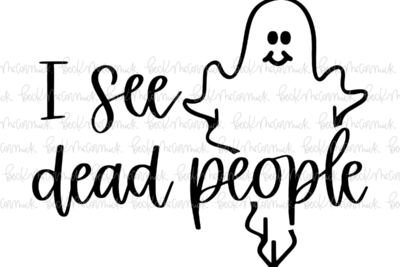 I see
dead people